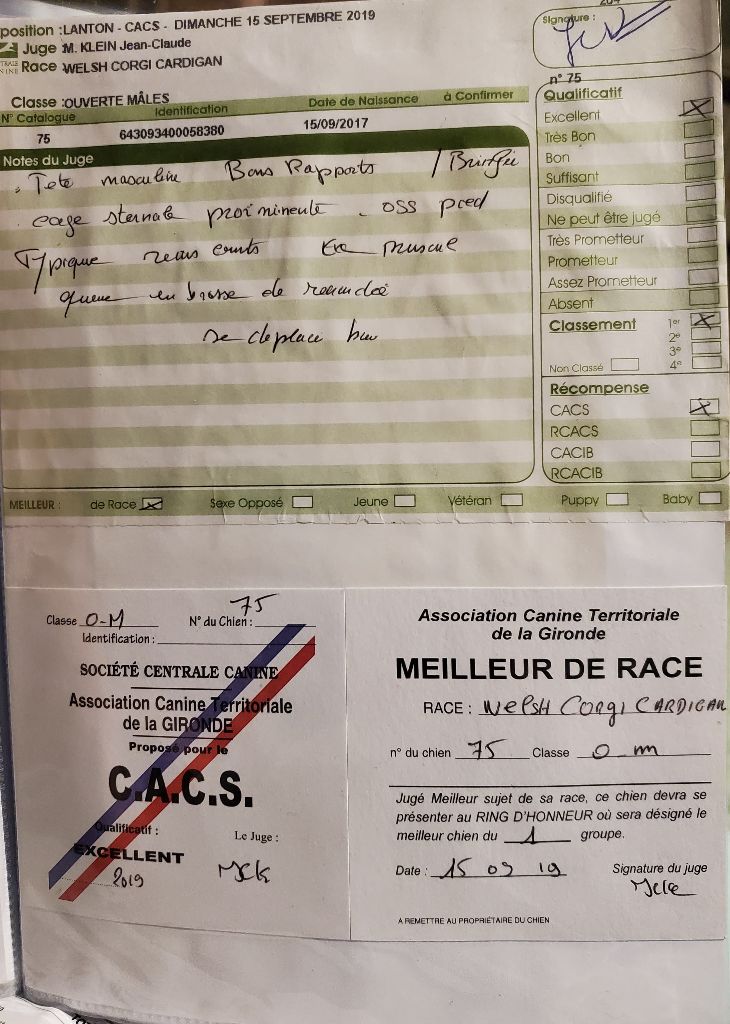 position : LANTON - CACS - DIMANCHE 15 SEPTEMBRE 2019
Juge : M. KLEIN Jean-Claude
Race : WELSH CORGI CARDIGAN
Classe : OUVERTE MÂLES
N° Catalogue Identification Date de Naissance à Confirmer
75 643093400058380 15/09/2017
Notes du Juge
Tete masculine Bons Rapports / Bringée
cage sternale proéminente oss pied
Typique reins courts musclé
queue en brosse de renard
se déplace bien
Signature :
n° 75
Qualificatif
Excellent
Très Bon
Bon
Suffisant
Disqualifié
Ne peut être jugé
Très Prometteur
Prometteur
Assez Prometteur
Absent
Classement 1er
2e
3e
Non Classé 4e
Récompense
CACS
RCACS
CACIB
RCACIB
MEILLEUR : de Race Sexe Opposé Jeune Vétéran Puppy Baby
Classe O-M N° du Chien : 75
Identification :
SOCIÉTÉ CENTRALE CANINE
Association Canine Territoriale
de la GIRONDE
Proposé pour le
C.A.C.S.
Qualificatif : Le Juge :
EXCELLENT
2019
Association Canine Territoriale
de la Gironde
MEILLEUR DE RACE
RACE : WELSH CORGI CARDIGAN
n° du chien 75 Classe O m
Jugé Meilleur sujet de sa race, ce chien devra se
présenter au RING D'HONNEUR où sera désigné le
meilleur chien du 1 groupe.
Date : 15 09 19 Signature du juge
A REMETTRE AU PROPRIÉTAIRE DU CHIEN